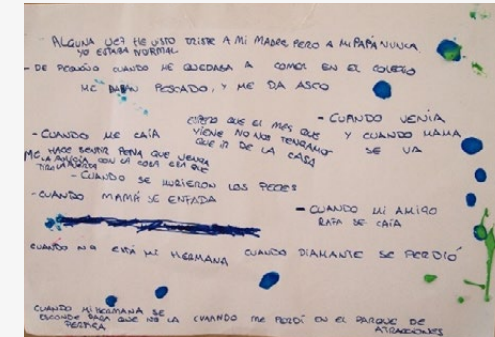 ALGUNA VEZ HE VISTO TRISTE A MI MADRE PERO A MI PAPÁ NUNCA
YO ESTABA NORMAL
- DE PEQUEÑO CUANDO ME QUEDABA A COMER EN EL COLEGIO
ME DABAN PESCADO, Y ME DA ASCO
- CUANDO ME CAÍA
ESPERO QUE EL MES QUE
VIENE NO NOS TENGAMOS
QUE IR DE LA CASA
- CUANDO VENÍA
Y CUANDO MAMA
SE VA
ME HACE SENTIR PENA QUE VENGA
LA AMIGA CON LA COSA CON QUE
- CUANDO SE MURIERON LOS PECES
- CUANDO MAMÁ SE ENFADA
- CUANDO MI AMIGO
RAFA SE CAÍA
CUANDO NO ESTÁ MI HERMANA
CUANDO DIAMANTE SE PERDIÓ
CUANDO MI HERMANA SE
ESCONDE PARA QUE NO LA
PERSIGA
CUANDO ME PERDÍ EN EL PARQUE DE
ATRACCIONES